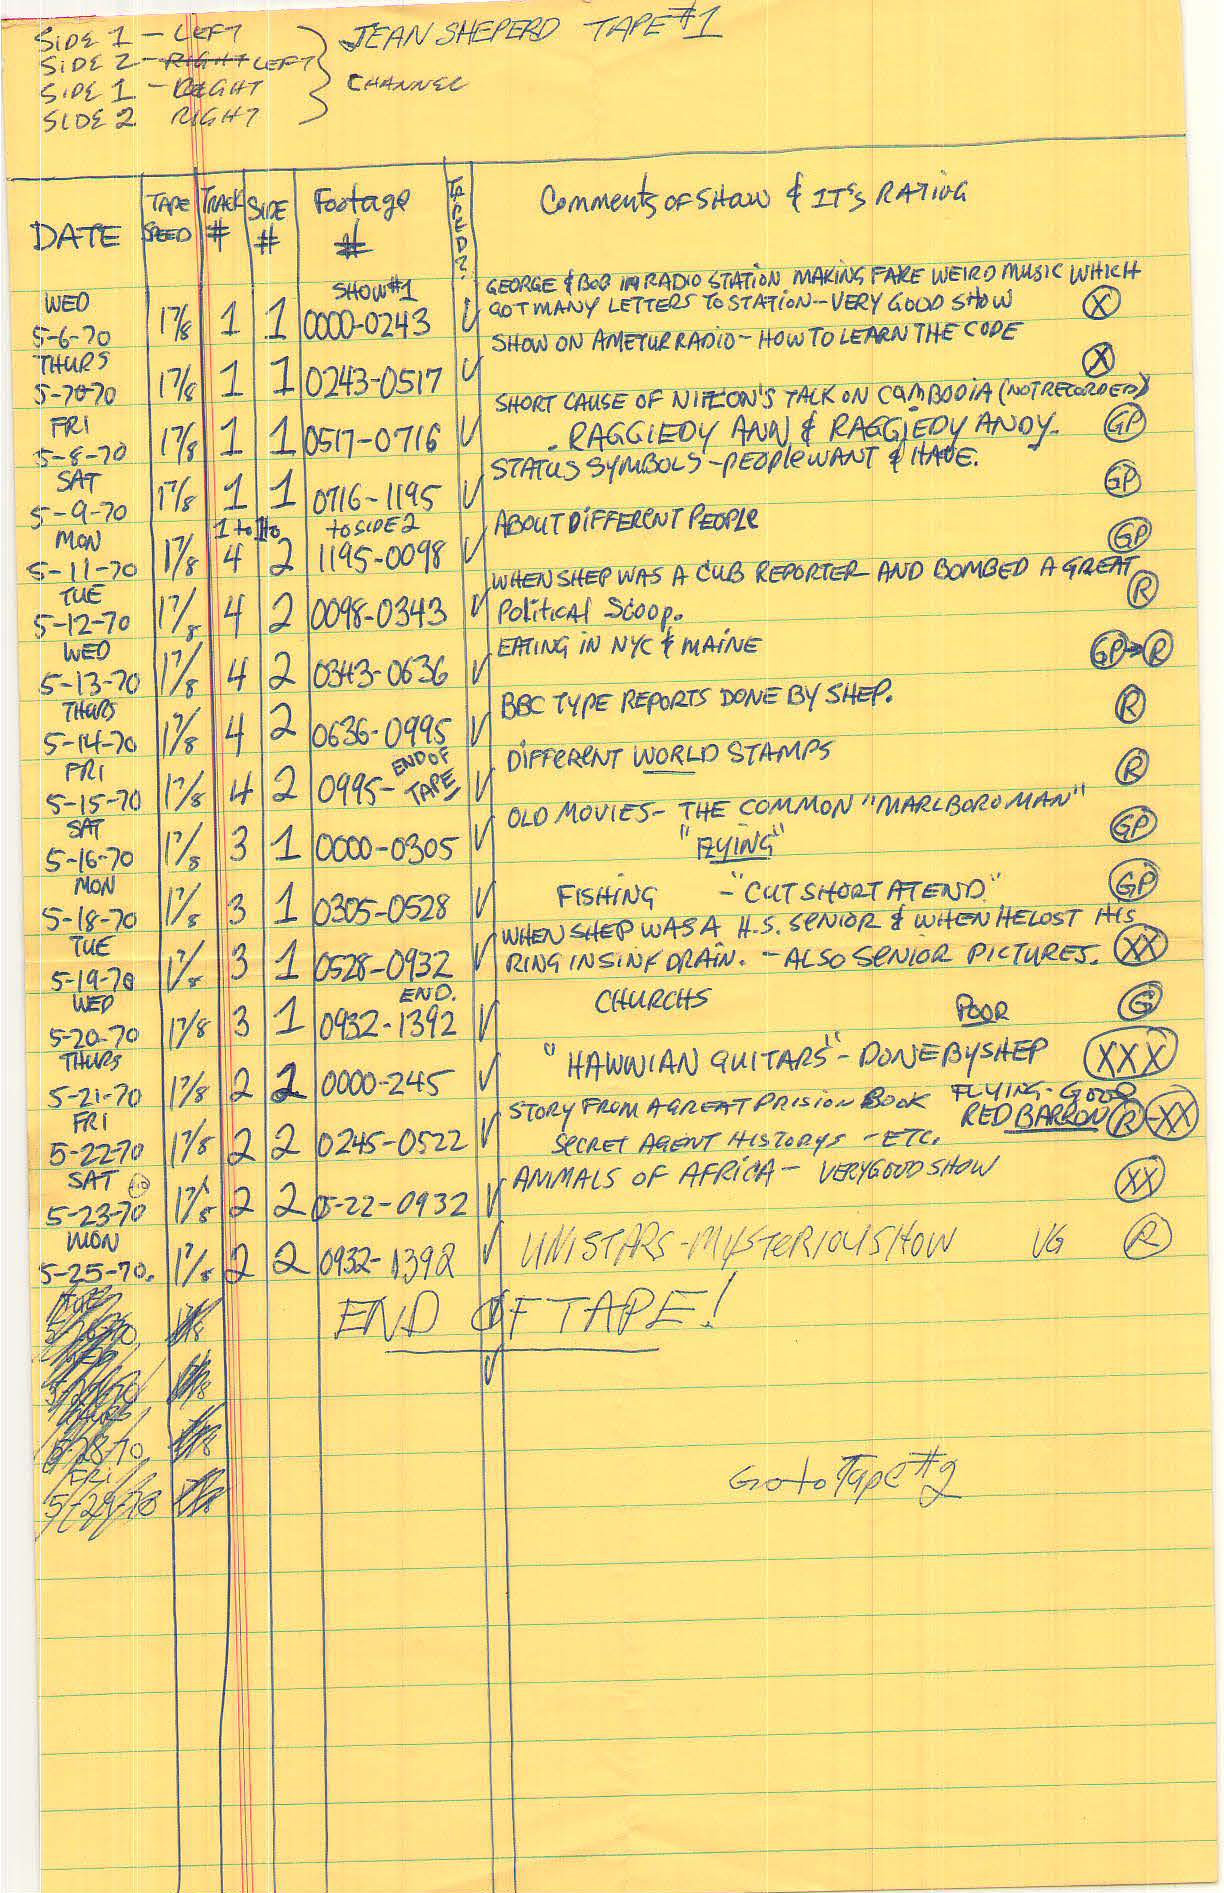 SIDE 1 - LEFT
SIDE 2 - RIGHT LEFT
SIDE 1 - RIGHT
SIDE 2 RIGHT
JEAN SHEPERD TAPE #1
CHANNEL
DATE TAPE SPEED TRACK # SIDE # Footage # Comments of SHOW & IT'S RATING
SHOW #1
WED 5-6-70 1 7/8 1 1 0000-0243 ✓ GEORGE & BOB IN RADIO STATION MAKING FAKE WEIRD MUSIC WHICH
GOT MANY LETTERS TO STATION - VERY GOOD SHOW X
THURS 5-7-70 1 7/8 1 1 0243-0517 ✓ SHOW ON AMETUR RADIO - HOW TO LEARN THE CODE X
FRI 5-8-70 1 7/8 1 1 0517-0716 ✓ SHORT CAUSE OF NIXON'S TALK ON CAMBODIA (NOT RECORDED)
- RAGGIEDY ANN & RAGGIEDY ANDY. GP
SAT 5-9-70 1 7/8 1 1 0716-1195 ✓ STATUS SYMBOLS - PEOPLE WANT & HAVE. GP
1 to 1 to to SIDE 2
MON 5-11-70 1 7/8 4 2 1195-0098 ✓ ABOUT DIFFERENT PEOPLE GP
TUE 5-12-70 1 7/8 4 2 0098-0343 ✓ WHEN SHEP WAS A CUB REPORTER AND BOMBED A GREAT
Political Scoop. R
WED 5-13-70 1 7/8 4 2 0343-0636 ✓ EATING IN NYC & MAINE GP→R
THURS 5-14-70 1 7/8 4 2 0636-0995 ✓ BBC TYPE REPORTS DONE BY SHEP. R
FRI 5-15-70 1 7/8 4 2 0995- END OF TAPE ✓ DIFFERENT WORLD STAMPS R
SAT 5-16-70 1 7/8 3 1 0000-0305 ✓ OLD MOVIES - THE COMMON "MARLBORO MAN"
"FLYING" GP
MON 5-18-70 1 7/8 3 1 0305-0528 ✓ FISHING - "CUT SHORT AT END." GP
TUE 5-19-70 1 7/8 3 1 0528-0932 ✓ WHEN SHEP WAS A H.S. SENIOR & WHEN HE LOST HIS
RING IN SINK DRAIN. - ALSO SENIOR PICTURES. XX
END.
WED 5-20-70 1 7/8 3 1 0932-1392 ✓ CHURCHS POOR G
THURS 5-21-70 1 7/8 2 2 0000-245 ✓ "HAWNIAN GUITARS" - DONE BY SHEP XXX
FLYING - GOOD
FRI 5-22-70 1 7/8 2 2 0245-0522 ✓ STORY FROM A GREAT PRISION BOOK RED BARRON R-XX
SECRET AGENT HISTORYS - ETC.
SAT 5-23-70 1 7/8 2 2 05-22-0932 ✓ ANMALS OF AFRICA - VERY GOOD SHOW XX
MON 5-25-70. 1 7/8 2 2 0932-1392 ✓ UNISTARS - MYSTERIOUS HOW VG R
TUE 5-26-70 1 7/8
END OF TAPE!
WED 5-27-70 1 7/8 ✓
THURS 5-28-70 1 7/8
FRI 5-29-70 1 7/8
Go to Tape #2